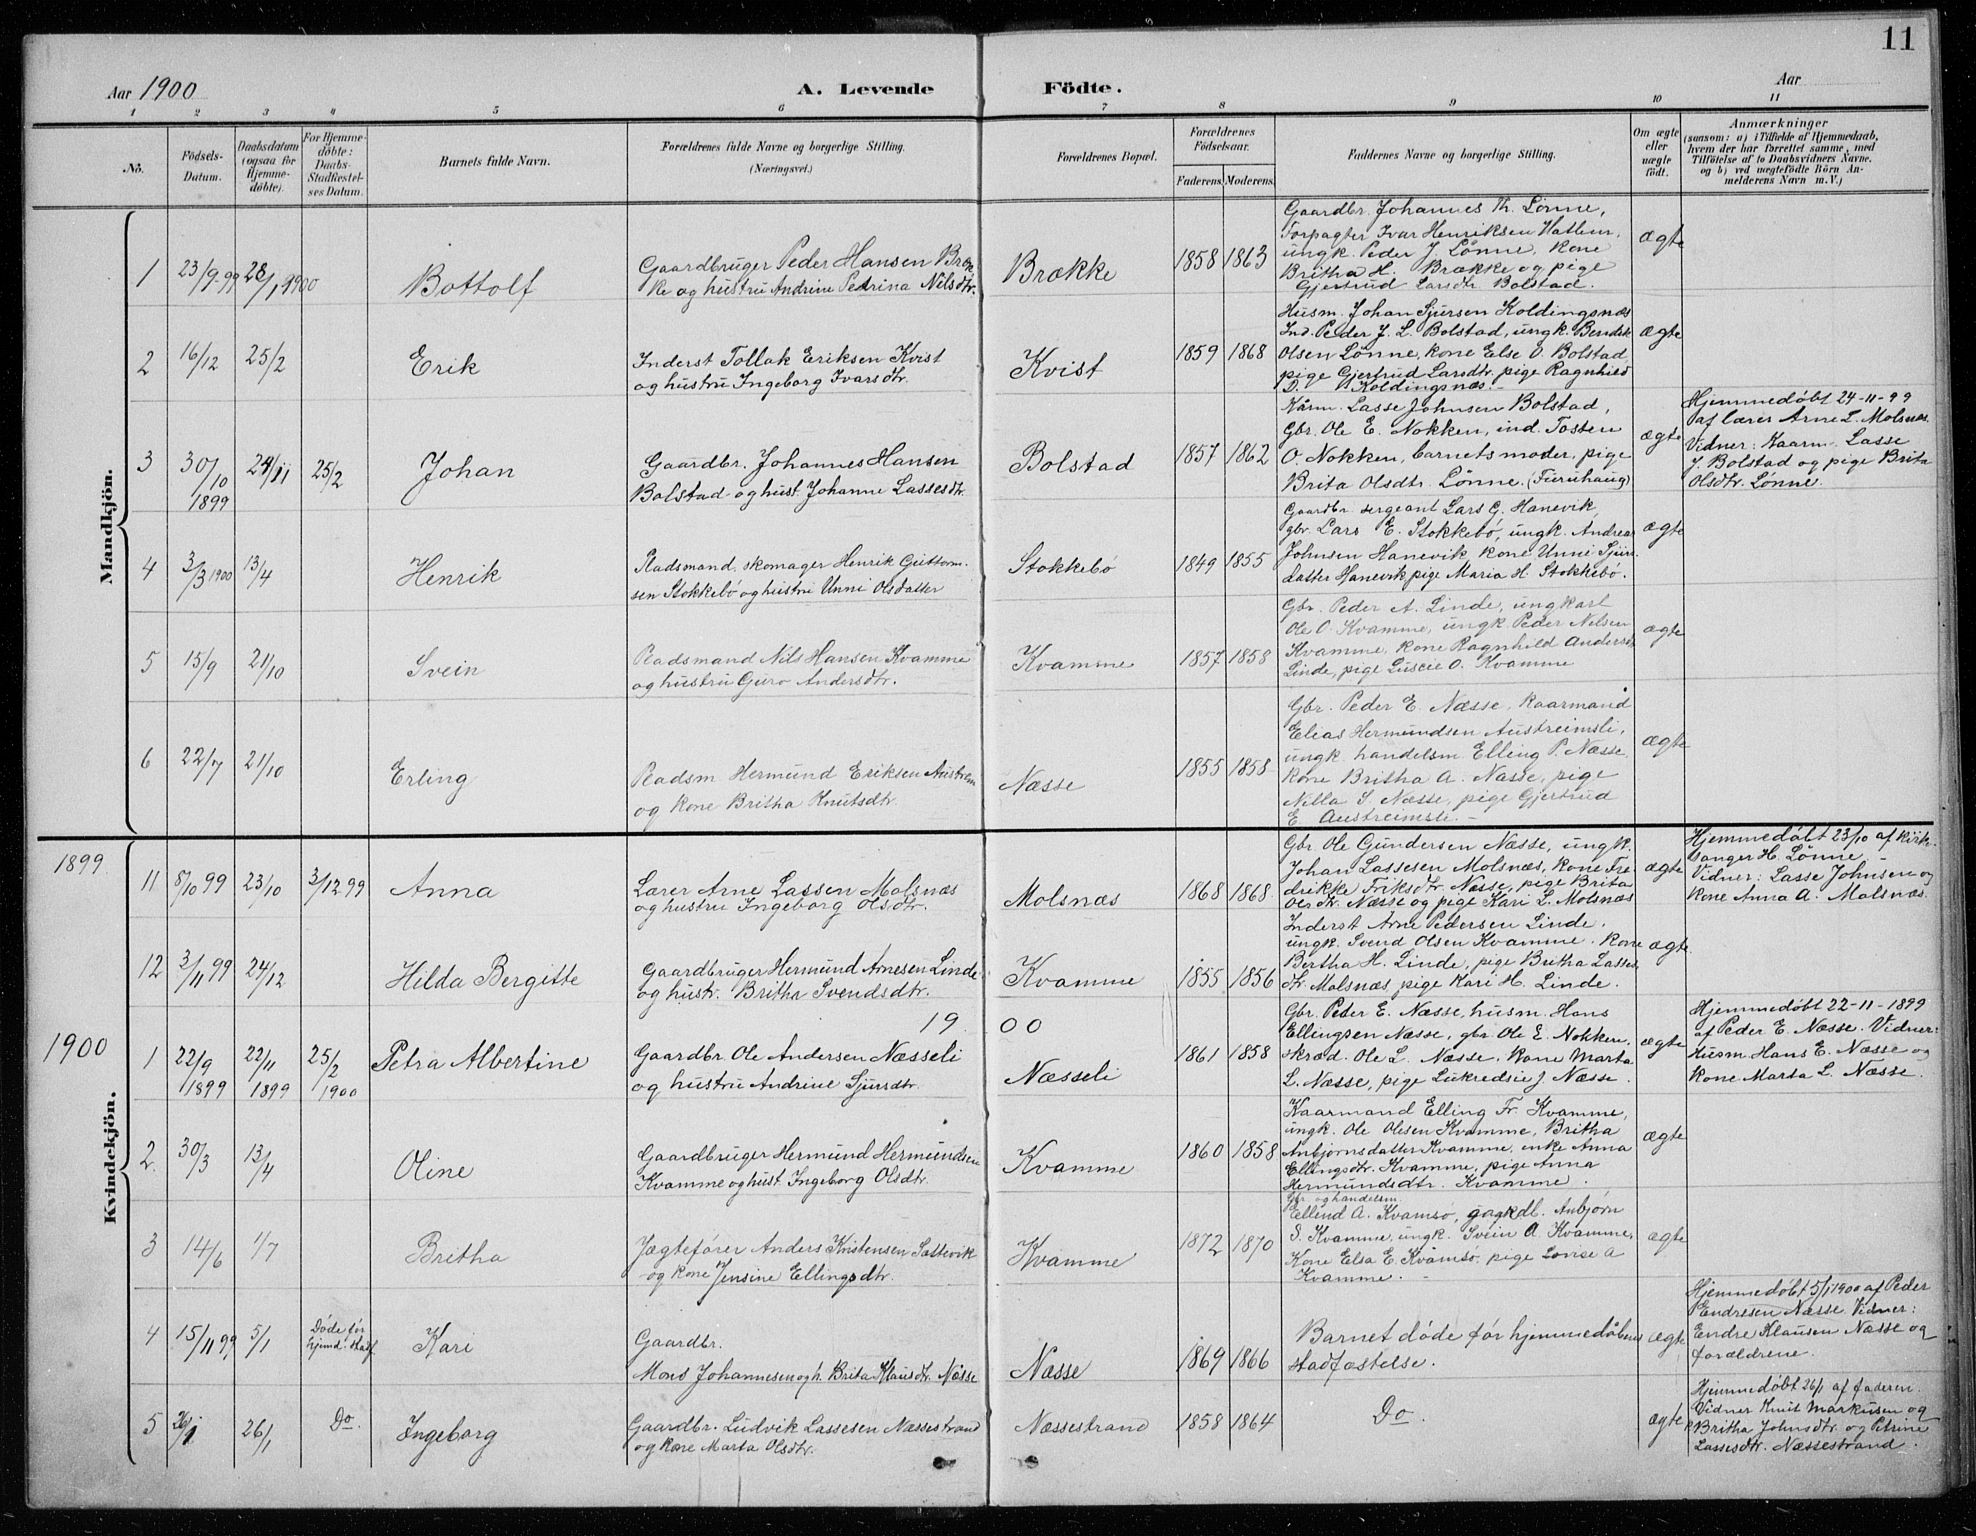 11
Aar 1900
A. Levende
Födte.
Aar
1 2 3 4 5 6 7 8 9 10 11
No.
Födsels-
Datum.
Daabsdatum
(ogsaa for
Hjemme-
döbte).
For Hjemme-
döbte:
Daabs-
Stadfæstel-
ses Datum.
Barnets fulde Navn.
Forældrenes fulde Navne og borgerlige Stilling.
(Næringsvei.)
Forældrenes Bopæl.
Forældrenes
Födselsaar.
Faderens. Moderens.
Faddernes Navne og borgerlige Stilling.
Om ægte
eller
uægte
födt.
Anmærkninger
(saasom: a) i Tilfælde af Hjemmedaab,
hvem der har forrettet samme, med
Tilföielse af to Daabsvidners Navne.
og b) ved uægtefödte Börn An-
melderens Navn m. V.)
Mandkjön.
1 23/9-99 28/1 1900 Bottolf
Gaardbruger Peder Hansen Bræk-
ke og hustru Andrine Petrina Nilsdtr.
Brække 1858 1863
Gaardbr. Johannes Th. Lønne,
Forpagter Ivar Henriksen Hatlem,
ungk. Peder J Lønne, Kone
Britha H. Brække og pige
Gjertrud Larsdtr Bolstad.
ægte
2 16/12 25/2 Erik
Inderst Tollak Eriksen Kvist
og hustru Ingeborg Ivarsdtr.
Kvist 1859 1868
Husm. Johan Sjursen Koldingsnæs
Ind. Peder J. L. Bolstad, ungk. Bendik
Olsen Lønne, kone Else O. Bolstad,
pige Gjertrud Larsdtr. pige Ragnhild
D. Koldingsnæs.-
ægte
3 30/10 1899 24/11 25/2 Johan
Gaardbr. Johannes Hansen
Bolstad og hust. Johanne Lassesdtr.
Bolstad 1857 1862
Kårm. Lasse Johnsen Bolstad,
Gbr. Ole E. Nokken, ind. Tosten
O. Nokken, barnets moder, pige
Brita Olsdtr. Lønne. (Furuhaug)
ægte
Hjemmedøbt 24-11-99
af lærer Arne L. Molsnæs.
Vidner: Kaarm. Lasse
J. Bolstad og pige Brita
Olsdtr. Lønne.
4 3/3 1900 13/4 Henrik
Pladsmand. skomager Henrik Guttorm-
sen Stokkebø og hustru Unni Olsdatter
Stokkebø 1849 1855
Gaardbr sergeant Lars G. Hanevik,
gbr. Lars E. Stokkebø, ungk. Andreas
Johnsen Hanevik kone Unni Sjurs-
datter Hanevik pige Maria H. Stokkebø.
ægte
5 15/9 21/10 Svein
Pladsmand Nils Hansen Kvamme
og hustru Guro Andersdtr.
Kvamme 1857 1858
Gbr. Peder A. Linde, ungkarl
Ole O. Kvamme, ungk. Peder Nilsen
Kvamme, kone Ragnhild Anders
Linde, pige O. Kvamme
ægte
6 22/7 21/10 Erling
Pladsm Hermund Eriksen Austreim
og kone Britha Knutsdtr.
Næsse 1855 1858
Gbr. Peder E. Næsse, kaarmand
Elias Hermundsen Austreimsli,
ungk. handelsm Elling P. Næsse
kone Britha A. Næsse, pige
Nilla S. Næsse, pige Gjertrud
E Austreimsli.-
ægte
1899
Kvindekjön.
11 8/10 99 23/10 3/12 99 Anna
Lærer Arne Lassen Molsnæs
og hustru Ingeborg Olsdtr.
Molsnæs 1868 1868
Gbr. Ole Gundersen Næsse, ungk.
Johan Lassesen Molsnæs, kone Fre-
drikke Eriksdtr. Næsse, pige Brita
Olsdtr. Næsse og pige Kari L. Molsnæs
ægte
Hjemmedøbt 23/10 af kirke-
sanger H. Lønne.-
Vidner: Lasse Johnsen og
kone Anna A. Molsnæs.
12 3/11 99 24/12 Hilda Bergitte
Gaardbruger Hermund Arnesen Linde
og hustr. Britha Svendsdtr.
Kvamme 1855 1856
Inderst Arne Pedersen Linde.
ungk. Svend Olsen Kvamme. Kone
Bertha H. Linde, pige Britha Lasses-
dtr. Molsnæs, pige Kari H. Linde.
ægte
1900
19 00
1 22/9 1899 22/11 1899 25/2 1900 Petra Albertine
Gaardbr. Ole Andersen Næsseli
og hustru Andrine Sjursdtr.
Næsseli 1861 1858
Gbr. Peder E. Næsse, husm. Hans
Ellingsen Næsse, gbr. Ole E. Nokken,
skræd. Ole L. Næsse, kone Marta
L. Næsse, pige Lukredsie J. Næsse.
ægte
Hjemmedøbt 22-11-1899
af Peder E. Næsse. Vidner:
Husm. Hans E. Næsse og
kone Marta L. Næsse.
2. 30/3 13/4 Oline
Gaardbruger Hermund Hermundsen
Kvamme og hust. Ingeborg Olsdtr.
Kvamme 1860 1858
Kaarmand Elling Fr. Kvamme,
ungk. Ole Olsen Kvamme, Britha
Anbjørnsdatter Kvamme, enke Anna
Ellingsdtr. Kvamme, pige Anna
Hermundsdtr. Kvamme.
ægte
3 14/6 1/7 Britha
Jægtefører Anders Kristensen Sættevik
og kone Jensine Ellingsdtr.
Kvamme 1872 1870
Gbr og handelsm.
Ellend A. Kvamsø, Anbjørn
S. Kvamme, ungk. Svein A. Kvamme,
Kone Elsa E. Kvamsø, pige Lonse A
Kvamme.-
ægte
4 15/11 99 5/1 Døde før hjemd. stadf. Kari
Gaardbr.
Mons Johannesen og h. Brita Klausdtr. Næsse
Næsse 1869 1866
Barnet døde før hjemmedåbens
stadfæstelse.
ægte
Hjemmedøbt 5/1 1900 af Peder
Endresen Næsse. Vidner:
Endre Klausen Næsse og
forældrene.
5 26/1 26/1 Do. Ingeborg
Gaardbr. Ludvik Lassesen Næssestrand
og kone Marta Olsdtr.
Næssestrand 1858 1864
Do
ægte
Hjemmedøbt 26/1 af faderen.
Vidner Knut Markusen og
Britha Johnsdtr. og Petrine
Lassesdtr. Næssestrand.